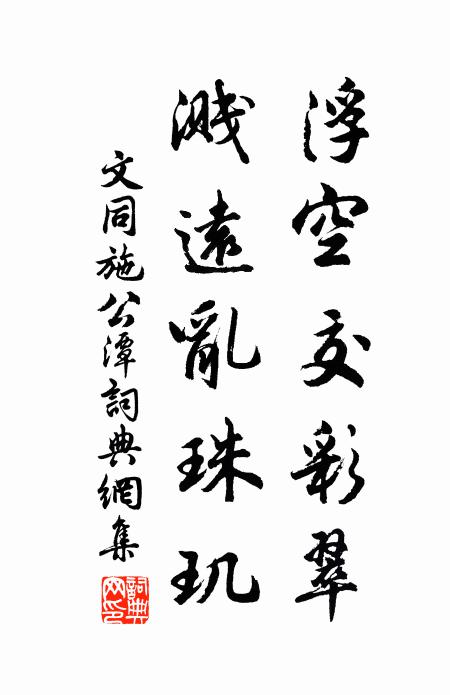 浮空交彩翠
溅遠亂珠玑
文同施公潭詞典網集
詞典网印